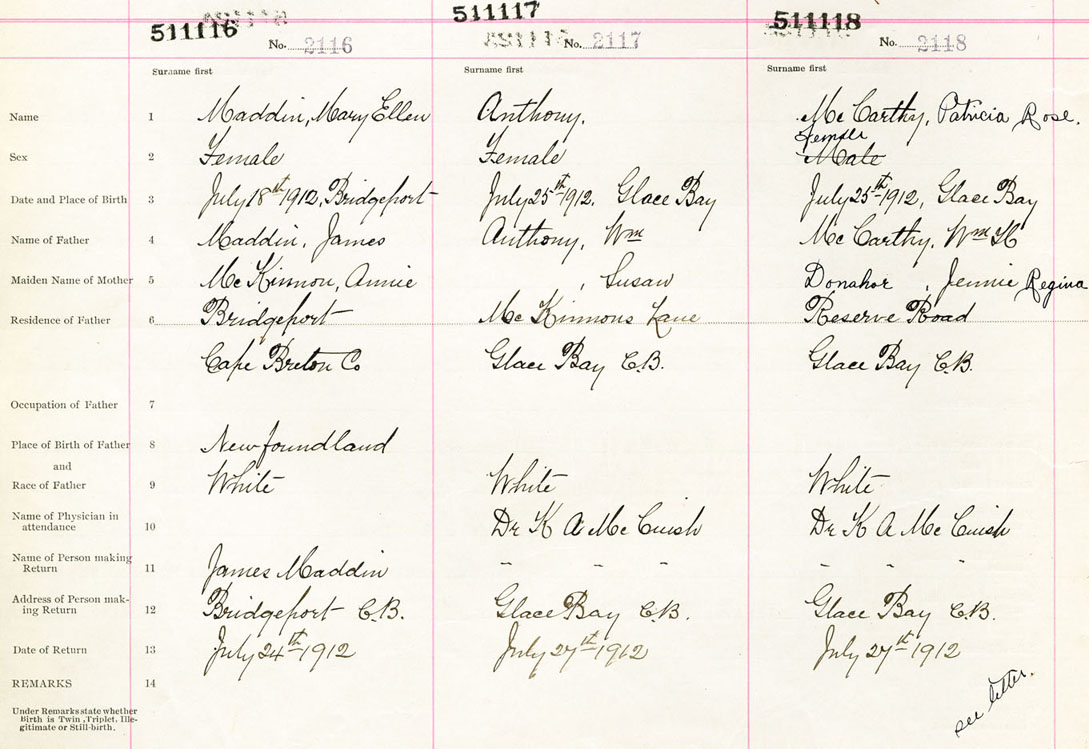 511116 511117 511118
No. 2116 No. 2117 No. 2118
Surname first Surname first Surname first
Name 1 Maddin, Mary Ellen Anthony, McCarthy, Patricia Rose.
Female
Sex 2 Female Female Male
Date and Place of Birth 3 July 18th 1912, Bridgeport July 25th 1912, Glace Bay July 25th 1912, Glace Bay
Name of Father 4 Maddin, James Anthony, Wm McCarthy, Wm H
Maiden Name of Mother 5 McKinnon, Annie , Susan Donahoe, Jennie Regina
Residence of Father 6 Bridgeport McKinnons Lane Reserve Road
Cape Breton Co Glace Bay C.B. Glace Bay C.B.
Occupation of Father 7
Place of Birth of Father 8 Newfoundland
and
Race of Father 9 White White White
Name of Physician in
attendance 10 Dr K A McCuish Dr K A McCuish
Name of Person making
Return 11 James Maddin " " " " " "
Address of Person mak-
ing Return 12 Bridgeport C.B. Glace Bay C.B. Glace Bay C.B.
Date of Return 13 July 24th 1912 July 27th 1912 July 27th 1912
REMARKS 14 see letter.
Under Remarks state whether
Birth is Twin, Triplet, Ille-
gitimate or Still-birth.